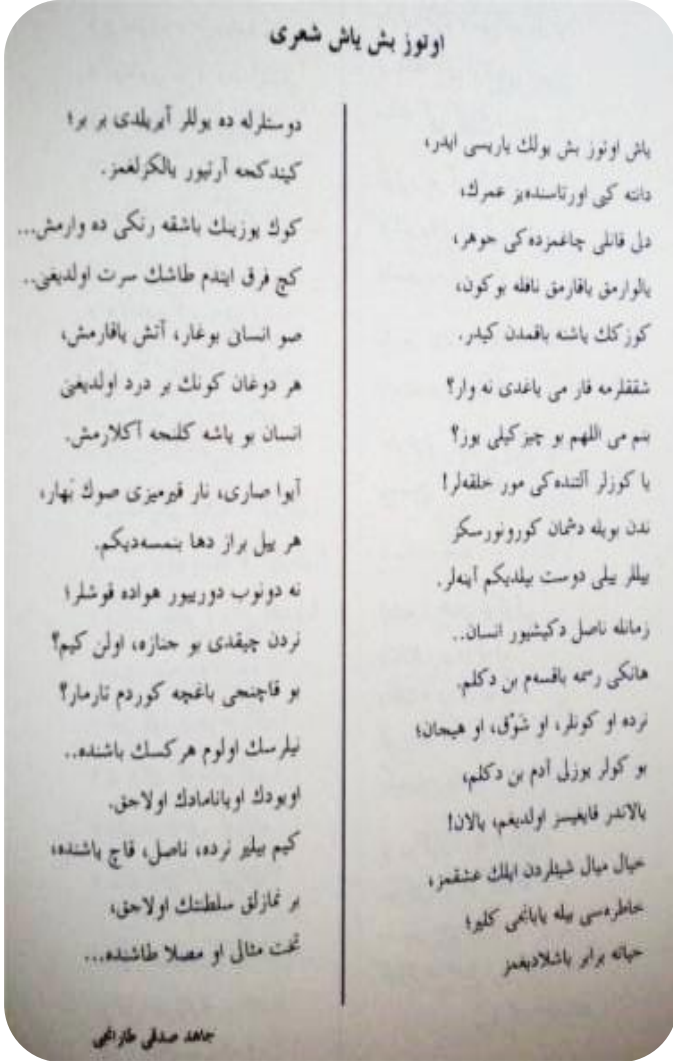 اوتوز بش ياش شعرى
ياش اوتوز بش يولك ياريسى ايدر،
دانته كبى اورتاسنده‌يز عمرك،
دل قانلى چاغمزده‌كى جوهر،
يالوارمق ياقارمق نافله بوكون،
كوزكك ياشنه باقمدن كيدر.
شقفلرمه قار مى ياغدى نه وار؟
بنم مى اللهم بو چيزكيلى يوز؟
يا كوزلر آلتنده‌كى مور خلقه‌لر!
ندن بويله دشمان كورونورسكز
ييللر ييلى دوست بيلديكم آينه‌لر.
زمانله ناصل دكيشيور انسان..
هانكى رسمه باقسه‌م بن دكلم.
نرده او كونلر، او شوْق، او هيجان؛
بو كولر يوزلى آدم بن دكلم،
يالاندر قايغيسز اولديغم، يالان!
خيال ميال شيئلردن ايلك عشقمز،
خاطره‌سى بيله يابانجى كلير؛
حياته برابر باشلاديغمز
دوستلرله ده يوللر آيريلدى بر بر؛
كيتدكجه آرتيور يالكزلغمز.
كوك يوزينك باشقه رنكى ده وارمش...
كج فرق ايتدم طاشك سرت اولديغنى..
صو انسانى بوغار، آتش ياقارمش،
هر دوغان كونك بر درد اولديغنى
انسان بو ياشه كلنجه آكلارمش.
آيوا صارى، نار قيرميزى صوك بَهار،
هر ييل براز دها بنمسه‌ديكم.
نه دونوب دورييور هواده قوشلر؛
نردن چيقدى بو جنازه، اولن كيم؟
بو قاچنجى باغچه كوردم تارمار؟
نيلرسك اولوم هركسك باشنده..
اويودك اويانامادك اولاجق.
كيم بيلير نرده، ناصل، قاچ ياشنده،
بر نمازلق سلطنتك اولاجق،
تخت مثالى او مصلا طاشنده...
جاهد صدقى طارانجى